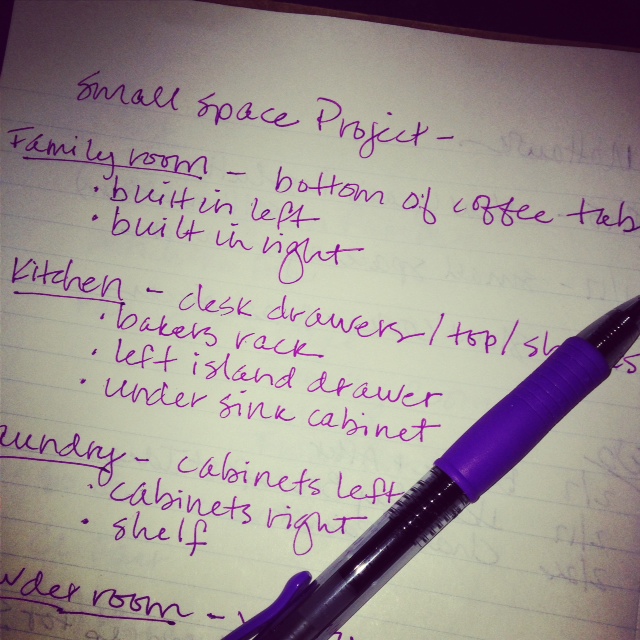 Small Space Project -
Family room - bottom of coffee tab
· built in left
· built in right
Kitchen - desk drawers/top/sh
· bakers rack
· left island drawer
· under sink cabinet
aundry - cabinets left
· cabinets right
· shelf
wder room -